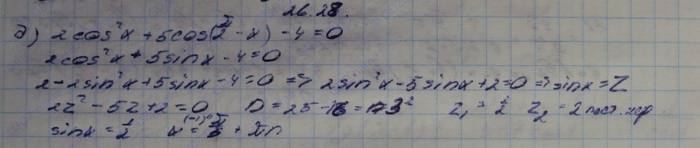 26.28.
д) 2cos²x+5cos(π/2-x)-4=0
2cos²x+5sinx-4=0
2-2sin²x+5sinx-4=0 => 2sin²x-5sinx+2=0 => sinx=Z
2z²-5z+2=0 D=25-16=3² Z₁=1/2 Z₂=2
sinx=1/2 x=(-1)ⁿπ/6+πn